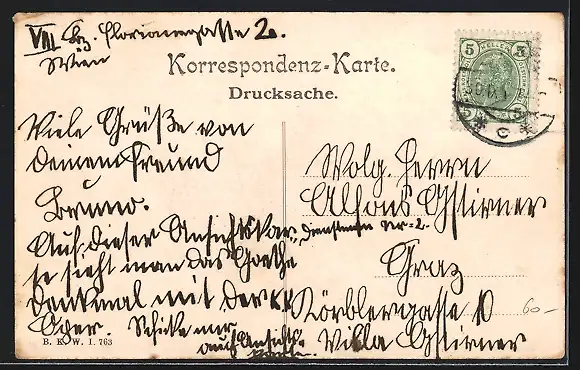 VIII Bz. Florianegasse 2.
Wien
Korrespondenz-Karte.
Drucksache.
5 HELLER 5
Viele Grüße von
deinem Freund
Bruno.
Auf dieser Ansichtskar=
te sieht man das Goethe
Denkmal mit der k.k.
Oper. Schicke mir
auch Ansichts=
karten.
Wolg. Herrn
Alfons Gstirner
Graz
Körblergasse 10
Villa Gstirner
60-
B. K. W. I. 763